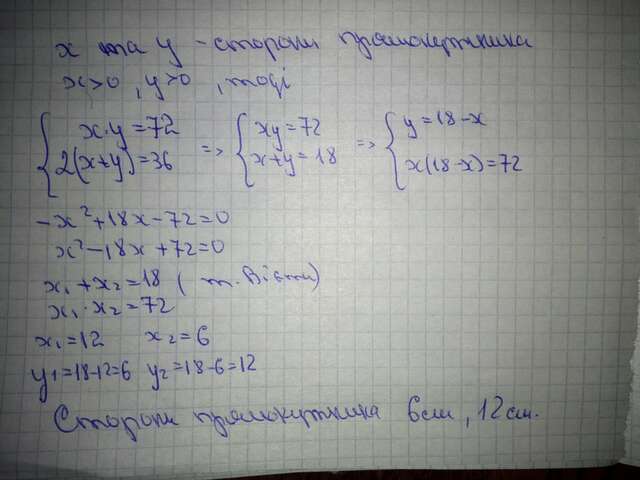 x та y - сторони прямокутника
x>0, y>0, тоді
{x·y=72 2(x+y)=36 => {xy=72 x+y=18 => {y=18-x x(18-x)=72
-x²+18x-72=0
x²-18x+72=0
x₁+x₂=18 (т. Вієта)
x₁·x₂=72
x₁=12 x₂=6
y₁=18+2=6 y₂=18-6=12
Сторони прямокутника 6см, 12см.